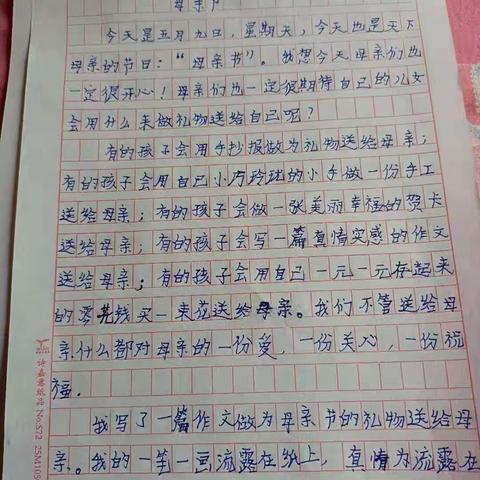 母亲节
今天是五月九日，星期天，今天也是天下
母亲的节日：“母亲节”。我想今天母亲们也
一定很开心！母亲们也一定很期待自己的儿女
会用什么来做礼物送给自己呢？
有的孩子会用手抄报做为礼物送给母亲；
有的孩子会用自己小巧玲珑的小手做一份手工
送给母亲；有的孩子会做一张美丽幸福的贺卡
送给母亲；有的孩子会写一篇真情实感的作文
送给母亲；有的孩子会用自己一元一元存起来
的零花钱买一束花送给母亲。我们不管送给母
亲什么都对母亲的一份爱，一份关心，一份祝
福.
我写了一篇作文做为母亲节的礼物送给母
亲。我的一笔一画流露在纸上，真情为流露在
No.572 25M105